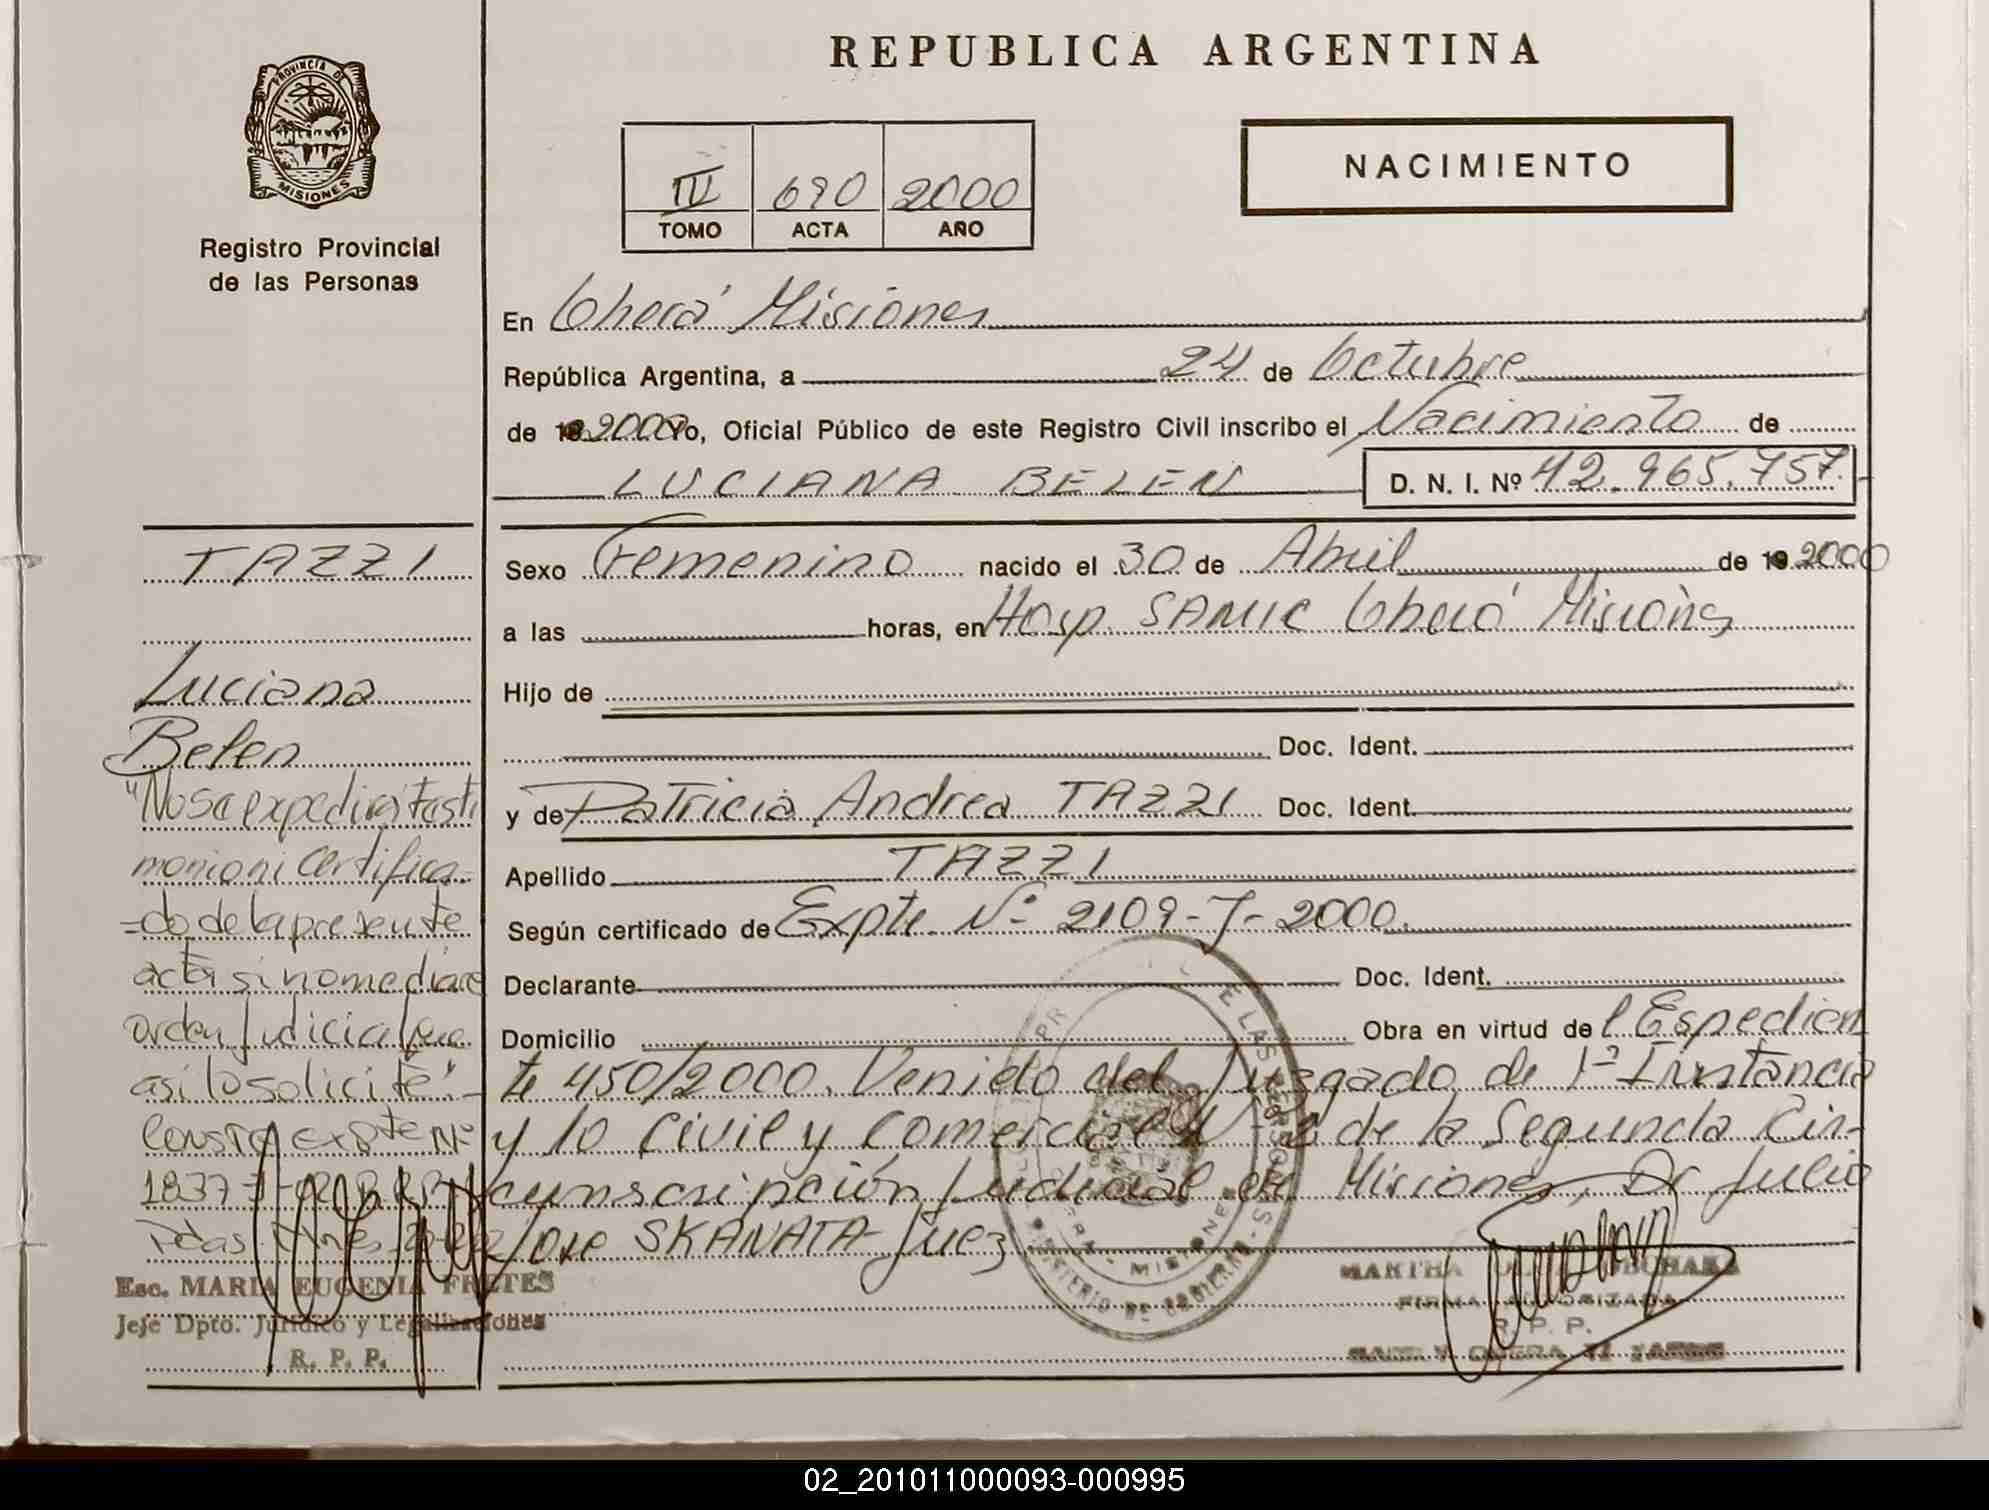 REPUBLICA ARGENTINA
PROVINCIA DE
MISIONES
Registro Provincial
de las Personas
IV 690 2000
TOMO ACTA AÑO
NACIMIENTO
En Oberá Misiones
República Argentina, a 24 de Octubre
de 19 2000 Yo, Oficial Público de este Registro Civil inscribo el Nacimiento de
LUCIANA BELEN D. N. I. Nº 42.965.757
TAZZI
Luciana
Belen
"No se expedirá testi
monio ni certifica-
-do de la presente
acta si no mediare
orden judicial que
asi lo solicite".-
Consta expte Nº
1837
Pdas.
Esc. MARIA EUGENIA FRETES
Jefe Dpto. Jurídico y Legalizaciones
R. P. P.
Sexo Femenino nacido el 30 de Abril de 19 2000
a las horas, en Hosp. SAMIC Oberá Misiones
Hijo de
Doc. Ident.
y de Patricia Andrea TAZZI Doc. Ident.
Apellido TAZZI
Según certificado de Expte. Nº 2109-T-2000.
Declarante Doc. Ident.
Domicilio Obra en virtud de l Espedien
te 450/2000. Venido del Juzgado de 1ª Instancia
y lo Civil y Comercial Nº 2 de la Segunda Cir-
cunscripción Judicial de Misiones, Dr Julio
Jose SKANATA Juez
MARTHA
FIRMA AUTORIZADA
R. P. P.
02_201011000093-000995